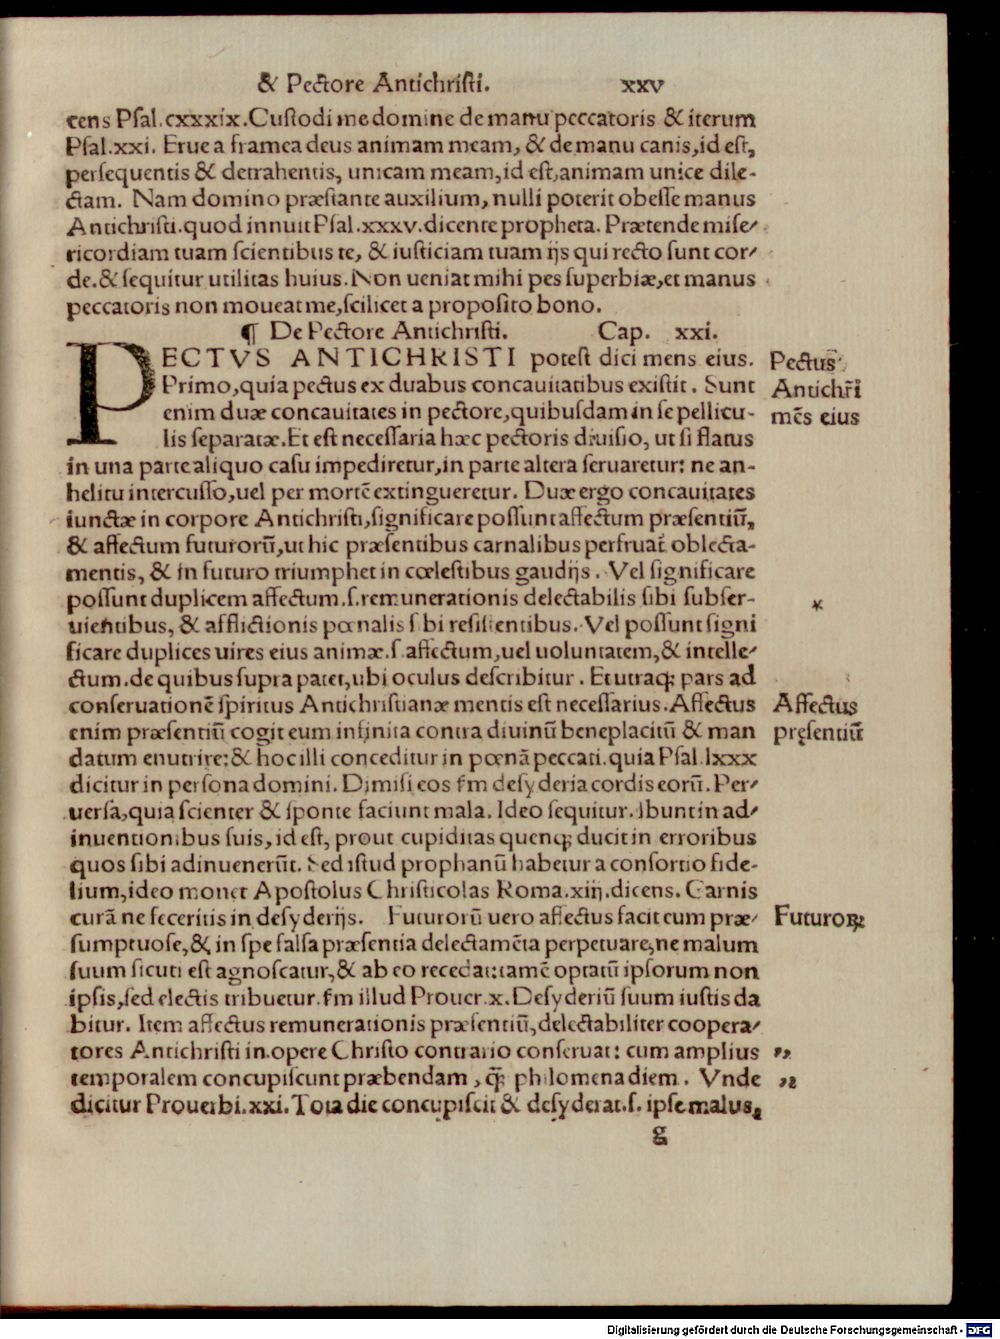 & Pectore Antichriſti. xxv
cens Pſal.cxxxix.Cuſtodi me domine de manu peccatoris & iterum
Pſal.xxi. Erue a framea deus animam meam, & de manu canis,id eſt,
perſequentis & detrahentis, unicam meam,id eſt,animam unice dile-
ctam. Nam domino præſtante auxilium, nulli poterit obeſſe manus
Antichriſti.quod innuit Pſal.xxxv.dicente propheta. Prætende miſe⸗
ricordiam tuam ſcientibus te, & iuſticiam tuam ijs qui recto ſunt cor⸗
de.& ſequitur utilitas huius.Non ueniat mihi pes ſuperbiæ,et manus
peccatoris non moueat me,ſcilicet a propoſito bono.
¶ De Pectore Antichriſti. Cap. xxi.
PECTVS ANTICHRISTI poteſt dici mens eius.
Pectus
Primo,quia pectus ex duabus concauitatibus exiſtit. Sunt
Antichr̃i
enim duæ concauitates in pectore,quibuſdam in ſe pellicu-
mẽs eius
lis ſeparatæ.Et eſt neceſſaria hæc pectoris diuiſio, ut ſi flatus
in una parte aliquo caſu impediretur,in parte altera ſeruaretur: ne an-
helitu intercuſſo,uel per mortẽ extingueretur. Duæ ergo concauitates
iunctæ in corpore Antichriſti,ſignificare poſſunt affectum præſentiũ,
& affectum futurorũ,ut hic præſentibus carnalibus perfruat̃ oblecta-
mentis, & in futuro triumphet in cœleſtibus gaudijs. Vel ſignificare
poſſunt duplicem affectum.ſ.remunerationis delectabilis ſibi ſubſer-
*
uientibus, & afflictionis pœnalis ſibi reſiſtentibus. Vel poſſunt ſigni
ficare duplices uires eius animæ.ſ.affectum,uel uoluntatem,& intelle⸗
ctum.de quibus ſupra patet,ubi oculus deſcribitur. Et utraq; pars ad
conſeruationẽ ſpiritus Antichriſtianæ mentis eſt neceſſarius.Affectus
Affectus
enim præſentiũ cogit eum infinita contra diuinũ beneplacitũ & man
pręſentiũ
datum enutrire:& hoc illi conceditur in pœnã peccati.quia Pſal.lxxx
dicitur in perſona domini. Dimiſi eos ſ̃m deſyderia cordis eorũ. Per⸗
uerſa,quia ſcienter & ſponte faciunt mala. Ideo ſequitur. Ibunt in ad⸗
inuentionibus ſuis, id eſt, prout cupiditas quenq; ducit in erroribus
quos ſibi adinuenerũt. Sed iſtud prophanũ habetur a conſortio fide-
lium,ideo monet Apoſtolus Chriſticolas Roma.xiij.dicens. Carnis
curã ne feceritis in deſyderijs. Futurorũ uero affectus facit eum præ⸗
Futuroꝝ
ſumptuoſe,& in ſpe falſa præſentia delectamẽta perpetuare,ne malum
ſuum ſicuti eſt agnoſcatur,& ab eo recedat:tamẽ optatũ ipſorum non
ipſis,ſed electis tribuetur.ſ̃m illud Prouer.x.Deſyderiũ ſuum iuſtis da
bitur. Item affectus remunerationis præſentiũ,delectabiliter coopera⸗
tores Antichriſti in opere Chriſto contrario conſeruat: cum amplius
„
temporalem concupiſcunt præbendam, q̃; philomena diem. Vnde
„
dicitur Prouerbi.xxi.Tota die concupiſcit & deſyderat.ſ.ipſe malus,
g
Digitalisierung gefördert durch die Deutsche Forschungsgemeinschaft - DFG